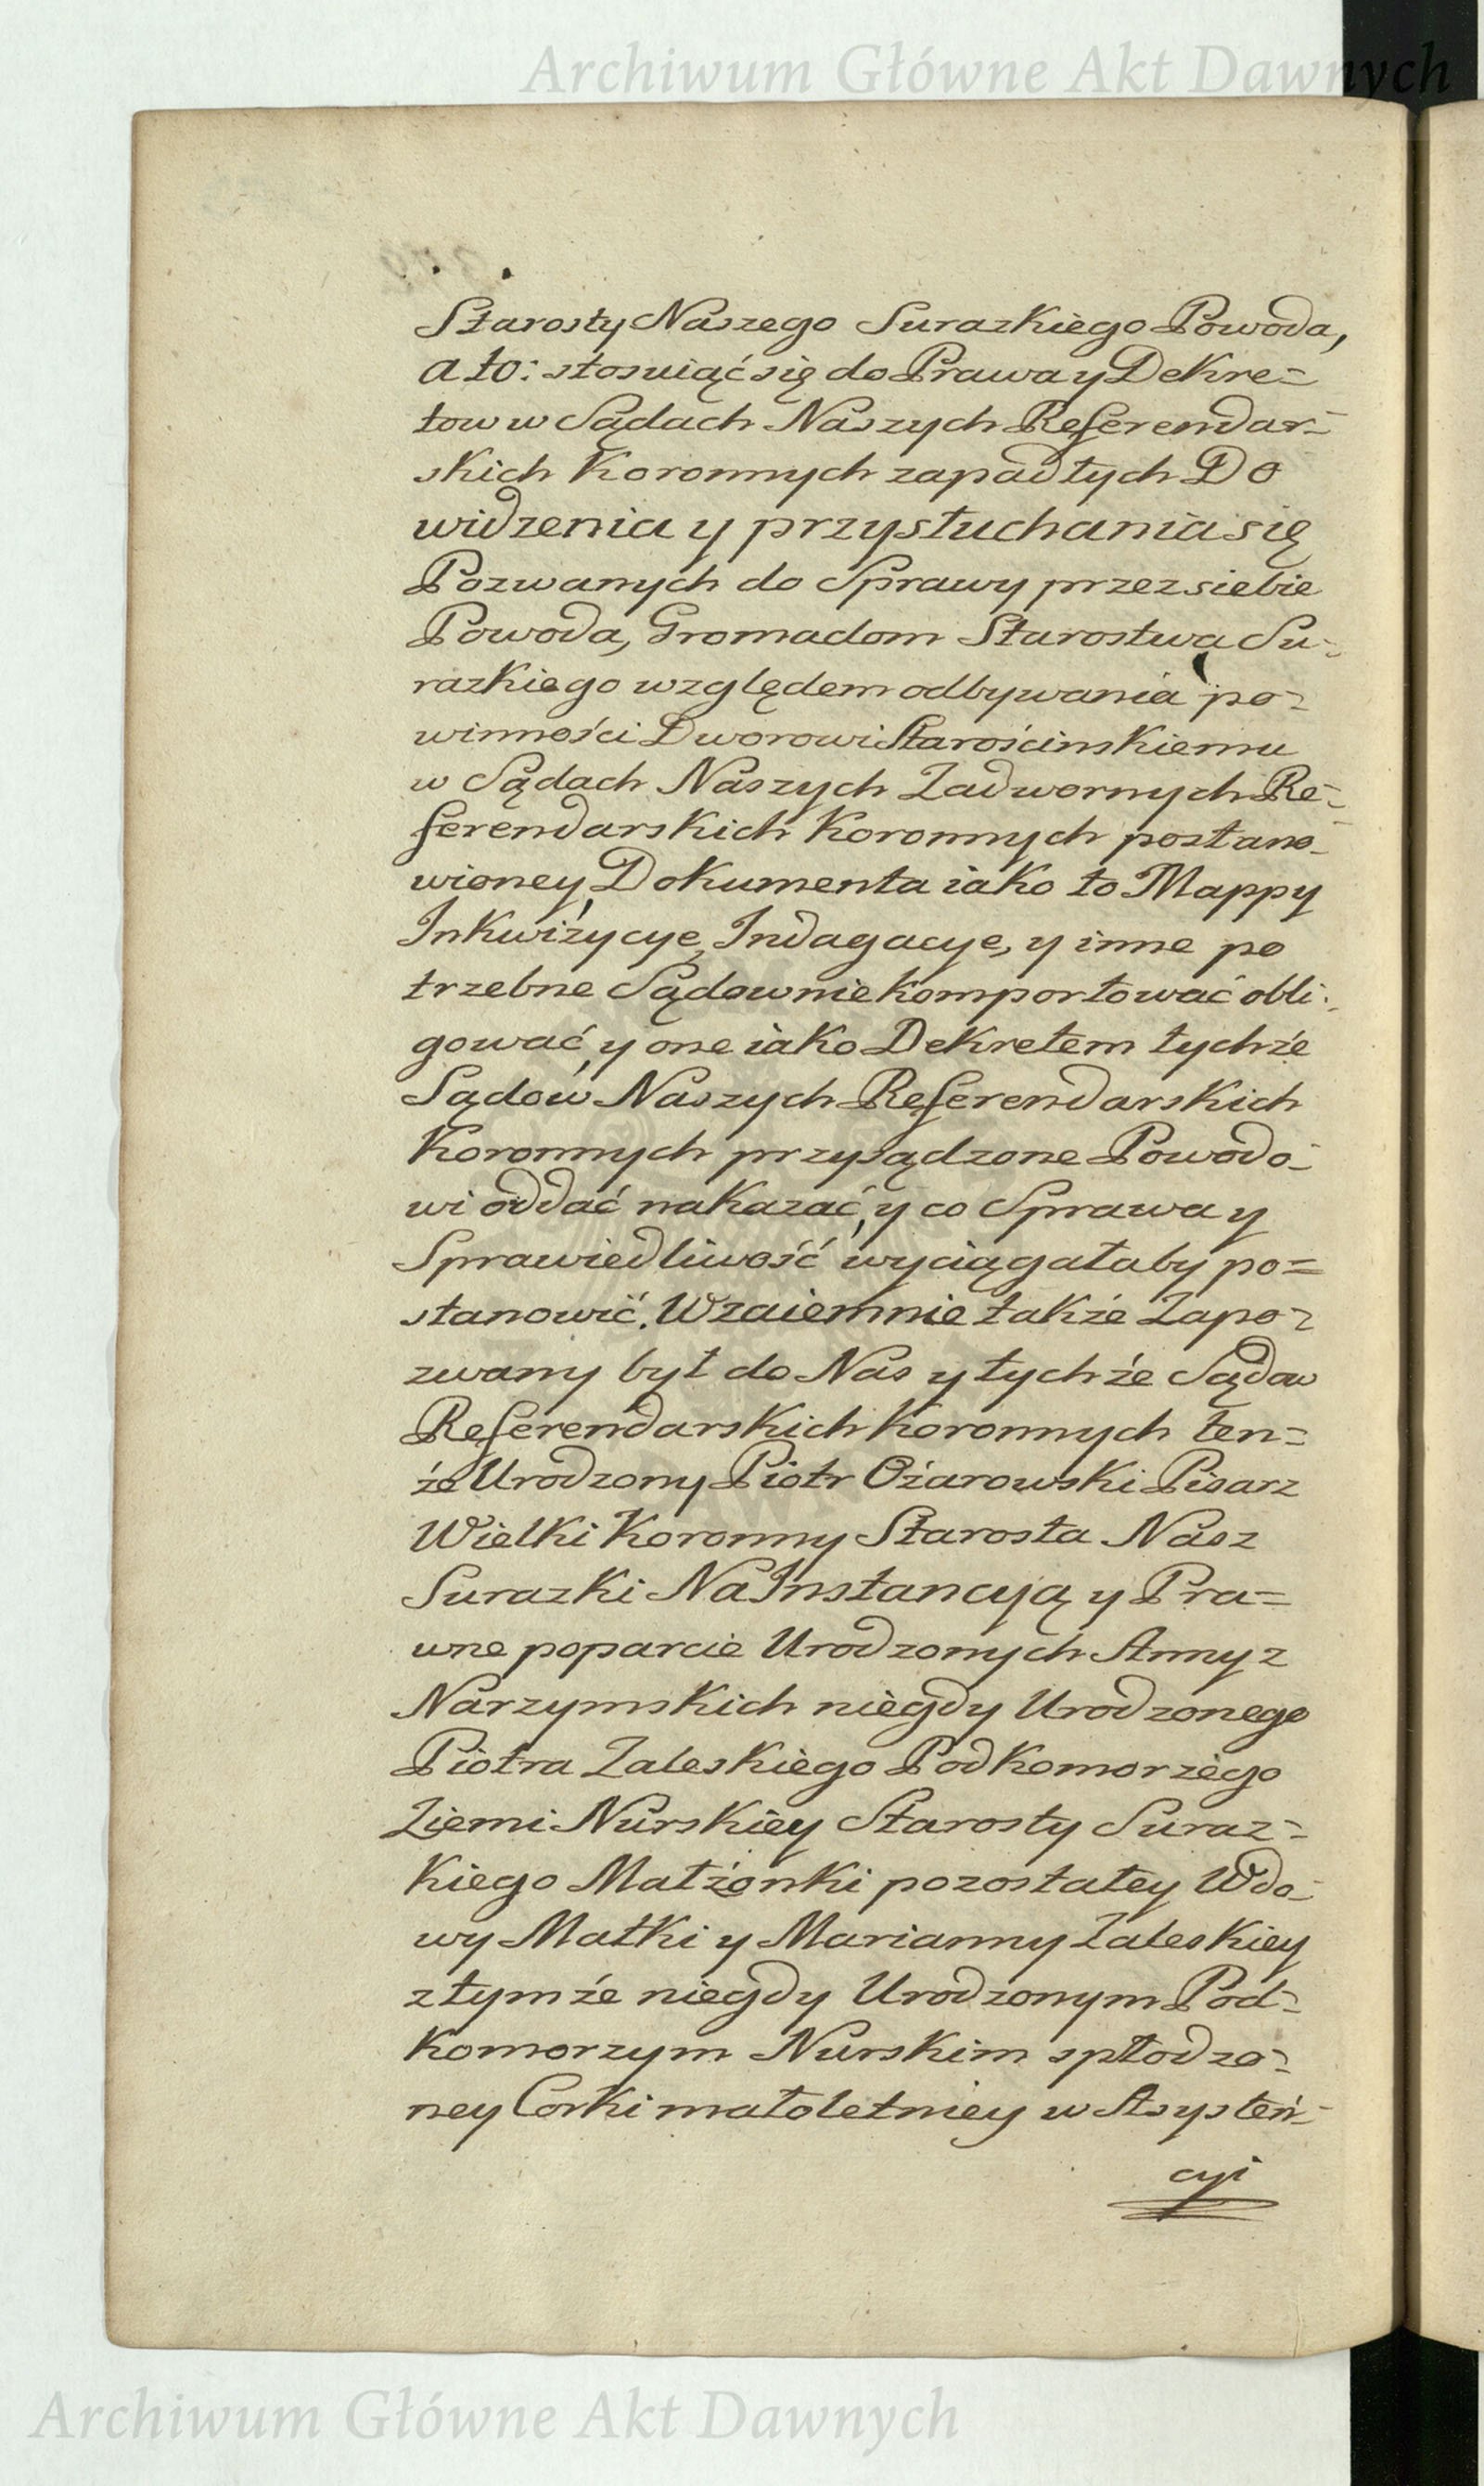 Archiwum Główne Akt Dawnych
Starosty Naszego Surazkiego Powoda,
a to: stosuiąć się do Prawa y Dekre=
tow w Sądach Naszych Referendar-
skich Koronnych zapadłych Do
widzenia y przysłuchania się
Pozwanych do Sprawy przez siebie
Powoda, Gromadom Starostwa Su-
razkiego względem odbywania po-
winności Dworowi Starościnskiemu
w Sądach Naszych Zadwornych Re-
ferendarskich Koronnych postano-
wioney, Dokumenta iako to Mappy
Inkwizycye, Indagacye, y inne po
trzebne Sądownie komportować obli-
gować, y one iako Dekretem tychże
Sądow Naszych Referendarskich
Koronnych przysądzone Powodo-
wi oddać nakazać, y co Sprawa y
Sprawiedliwość wyciągałaby po=
stanowić. Wzaiemnie także Zapo-
zwany był do Nas y tychże Sądow
Referendarskich Koronnych ten=
że Urodzony Piotr Ożarowski Pisarz
Wielki Koronny Starosta Nasz
Surazki Na Instancyą y Pra=
wne poparcie Urodzonych Anny z
Narzymskich niegdy Urodzonego
Piotra Zaleskiego Podkomorzego
Ziemi Nurskiey Starosty Suraz-
kiego Małżonki pozostałey Wdo-
wy Matki y Marianny Zaleskiey
z tymże niegdy Urodzonym Pod-
komorzym Nurskim spłodzo-
ney Corki małoletniey w Asysteń-
cyi
Archiwum Główne Akt Dawnych